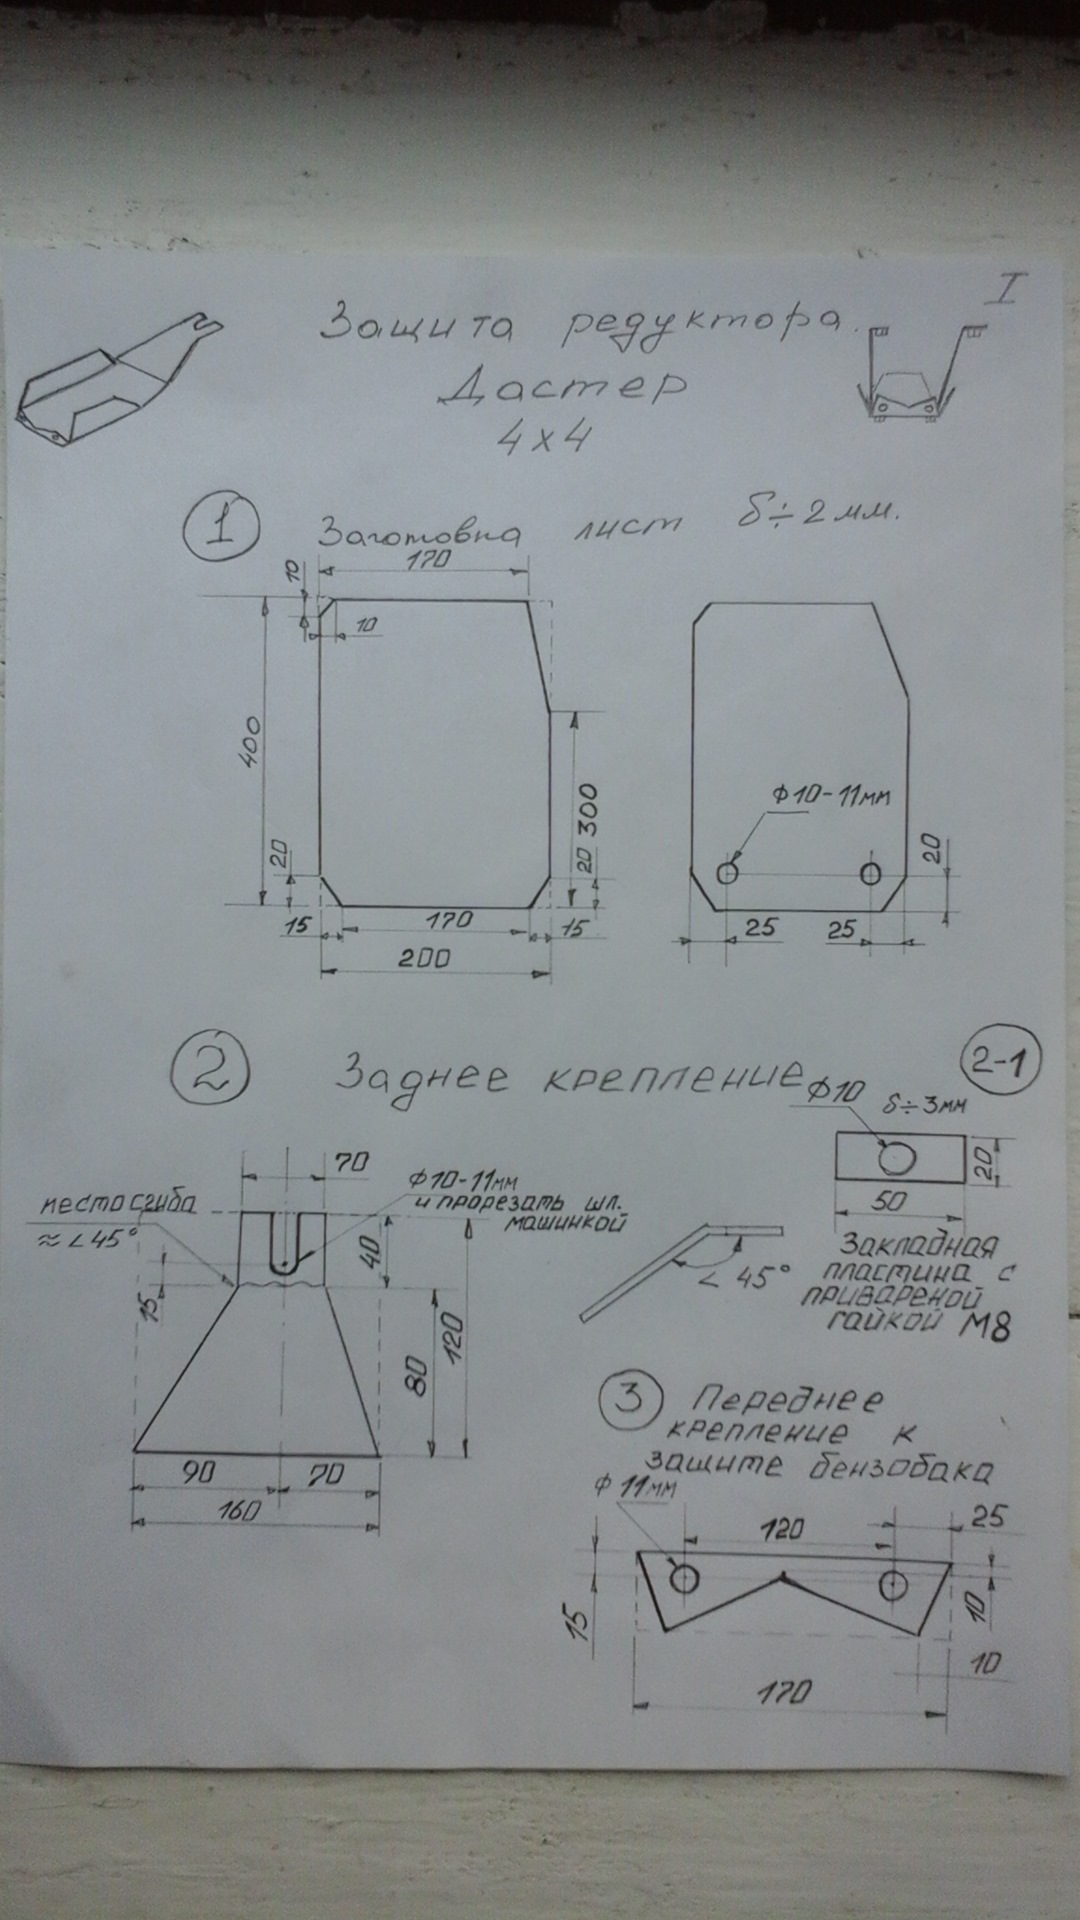 I
Защита редуктора
Дастер
4x4
1 Заготовка лист δ÷2мм.
170
10
10
400
300
20
20
15
170
15
200
Ф10-11мм
20
25
25
2 Заднее крепление
2-1
Ф10
δ÷3мм
20
50
Закладная
пластина с
привареной
гайкой М8
70
место сгиба
≈ ∠45°
Ф10-11мм
и прорезать шл.
машинкой
40
15
120
80
90
70
160
∠ 45°
3 Переднее
крепление к
защите бензобака
Ф 11мм
120
25
15
10
10
170